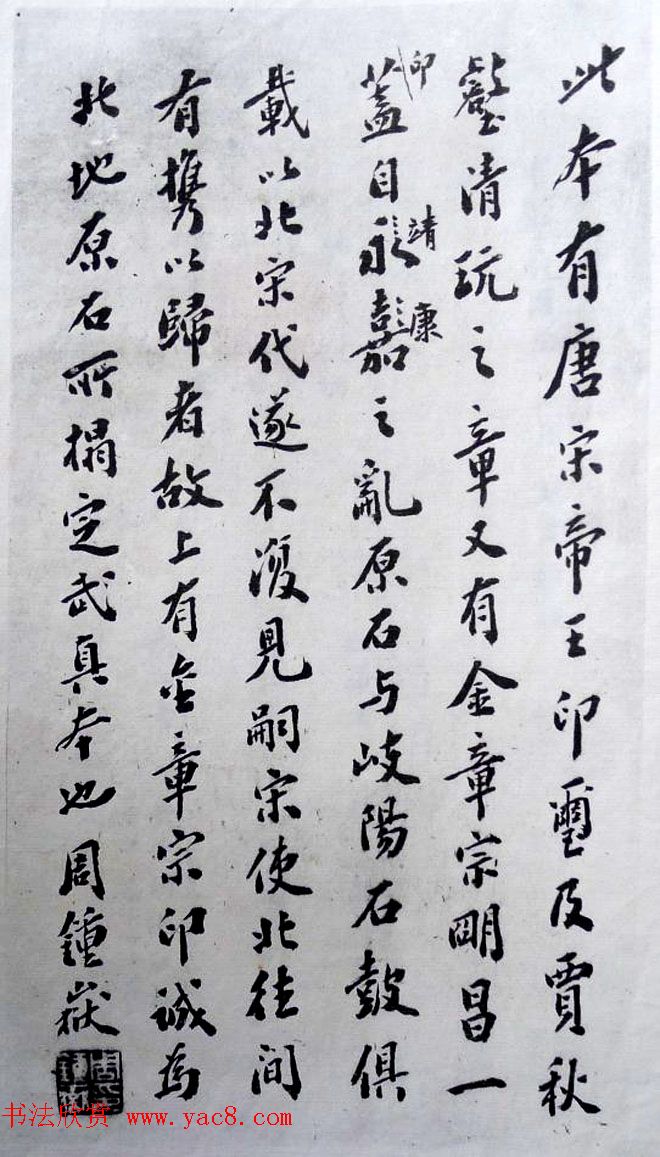 此本有唐宋帝王印璽及賈秋
壑清玩之章又有金章宗明昌一
印
蓋自永嘉之亂原石与岐陽石鼓俱
靖康
載以北宋代遂不復見嗣宋使北往間
有攜以歸者故上有金章宗印誠為
北地原石所搨定武真本也周鐘嶽
书法欣赏 www.yac8.com